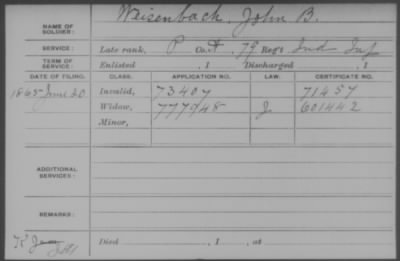 NAME OF SOLDIER: Weisenback, John B.
SERVICE: Late rank, P Co. 79 Reg't Ind Inf
TERM OF SERVICE: Enlisted , 1 Discharged , 1
DATE OF FILING. CLASS. APPLICATION NO. LAW. CERTIFICATE NO.
1865 June 20 Invalid, 73407 71457
Widow, 777948 J 601442
Minor,
ADDITIONAL SERVICES:
REMARKS:
Died , 1 , at